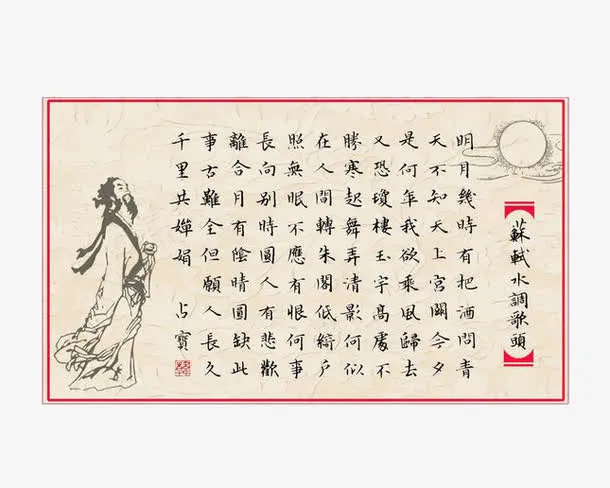 蘇軾水調歌頭
明月幾時有把酒問青
天不知天上宮闕今夕
是何年我欲乘風歸去
又恐瓊樓玉宇高處不
勝寒起舞弄清影何似
在人間轉朱閣低綺戶
照無眠不應有恨何事
長向別時圓人有悲歡
離合月有陰晴圓缺此
事古難全但願人長久
千里共嬋娟 占寶